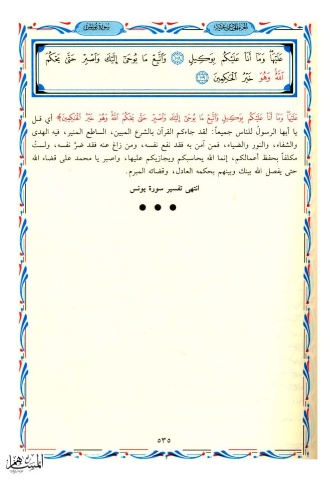 سورة يونس
عَلَيْهَا وَمَا أَنَا عَلَيْكُم بِوَكِيلٍ ﴿١٠٨﴾ وَاتَّبِعْ مَا يُوحَىٰ إِلَيْكَ وَاصْبِرْ حَتَّىٰ يَحْكُمَ
اللَّهُ وَهُوَ خَيْرُ الْحَاكِمِينَ ﴿١٠٩﴾
عَلَيْهَا وَمَا أَنَا عَلَيْكُم بِوَكِيلٍ وَاتَّبِعْ مَا يُوحَىٰ إِلَيْكَ وَاصْبِرْ حَتَّىٰ يَحْكُمَ اللَّهُ وَهُوَ خَيْرُ الْحَاكِمِينَ﴾ أي قل
يا أيها الرسول للناس جميعاً: لقد جاءكم القرآن بالشرع المبين، الساطع المنير، فيه الهدى
والشفاء، والنور والضياء، فمن آمن به فقد نفع نفسه، ومن زاغ عنه فقد ضرَّ نفسه، ولستُ
مكلفاً بحفظ أعمالكم، إنما الله يحاسبكم ويجازيكم عليها، واصبر يا محمد على قضاء الله
حتى يفصل الله بينك وبينهم بحكمه العادل، وقضائه المبرم.
انتهى تفسير سورة يونس
٥٣٥